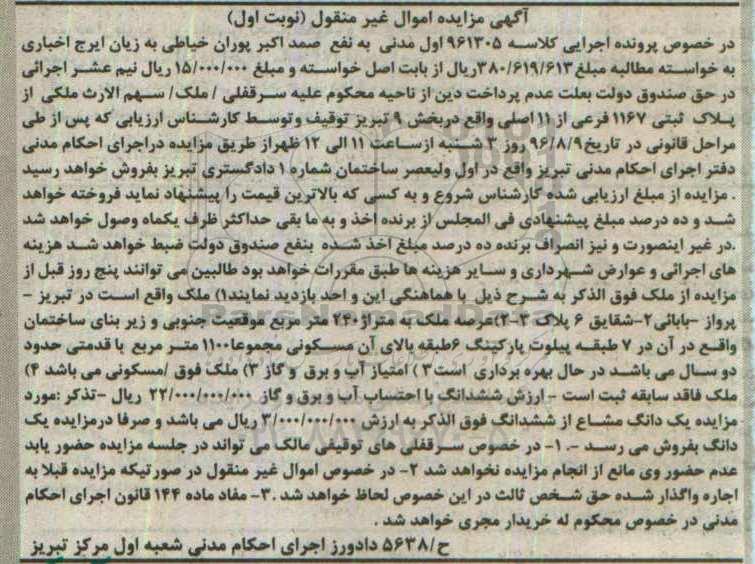 آگهی مزایده اموال غیر منقول (نوبت اول)
در خصوص پرونده اجرایی کلاسه ۹۶۱۳۰۵ اول مدنی به نفع صمد اکبر پوران خیاطی به زیان ایرج اخباری
به خواسته مطالبه مبلغ ۳۸۰/۶۱۹/۶۱۳ریال از بابت اصل خواسته و مبلغ ۱۵/۰۰۰/۰۰۰ ریال نیم عشر اجرائی
در حق صندوق دولت بعلت عدم پرداخت دین از ناحیه محکوم علیه سرقفلی / ملک/ سهم الارث ملکی از
پلاک ثبتی ۱۱۶۷ فرعی از ۱۱ اصلی واقع دربخش ۹ تبریز توقیف وتوسط کارشناس ارزیابی که پس از طی
مراحل قانونی در تاریخ۹۶/۸/۹ روز ۳ شنبه ازساعت ۱۱ الی ۱۲ ظهراز طریق مزایده دراجرای احکام مدنی
دفتر اجرای احکام مدنی تبریز واقع در اول ولیعصر ساختمان شماره ۱ دادگستری تبریز بفروش خواهد رسید
. مزایده از مبلغ ارزیابی شده کارشناس شروع و به کسی که بالاترین قیمت را پیشنهاد نماید فروخته خواهد
شد و ده درصد مبلغ پیشنهادی فی المجلس از برنده اخذ و به ما بقی حداکثر ظرف یکماه وصول خواهد شد
.در غیر اینصورت و نیز انصراف برنده ده درصد مبلغ اخذ شده بنفع صندوق دولت ضبط خواهد شد هزینه
های اجرائی و عوارض شهرداری و سایر هزینه ها طبق مقررات خواهد بود طالبین می توانند پنج روز قبل از
مزایده از ملک فوق الذکر به شرح ذیل با هماهنگی این و احد بازدید نمایند۱) ملک واقع است در تبریز -
پرواز -بابائی۲-شقایق ۶ پلاک ۳-۲)عرصه ملک به متراژ۲۴۰ متر مربع موقعیت جنوبی و زیر بنای ساختمان
واقع در آن در ۷ طبقه پیلوت پارکینگ ۶طبقه بالای آن مسکونی مجموعا۱۱۰۰ متر مربع با قدمتی حدود
دو سال می باشد در حال بهره برداری است۳ ) امتیاز آب و برق و گاز ۳) ملک فوق /مسکونی می باشد ۴)
ملک فاقد سابقه ثبت است - ارزش ششدانگ با احتساب آب و برق و گاز ۲۲/۰۰۰/۰۰۰/۰۰۰ ریال -تذکر :مورد
مزایده یک دانگ مشاع از ششدانگ فوق الذکر به ارزش ۳/۰۰۰/۰۰۰/۰۰۰ ریال می باشد و صرفا درمزایده یک
دانگ بفروش می رسد .- ۱- در خصوص سرقفلی های توقیفی مالک می تواند در جلسه مزایده حضور یابد
عدم حضور وی مانع از انجام مزایده نخواهد شد ۲- در خصوص اموال غیر منقول در صورتیکه مزایده قبلا به
اجاره واگذار شده حق شخص ثالث در این خصوص لحاظ خواهد شد .۳- مفاد ماده ۱۴۴ قانون اجرای احکام
مدنی در خصوص محکوم له خریدار مجری خواهد شد .
ح/۵۶۳۸ دادورز اجرای احکام مدنی شعبه اول مرکز تبریز